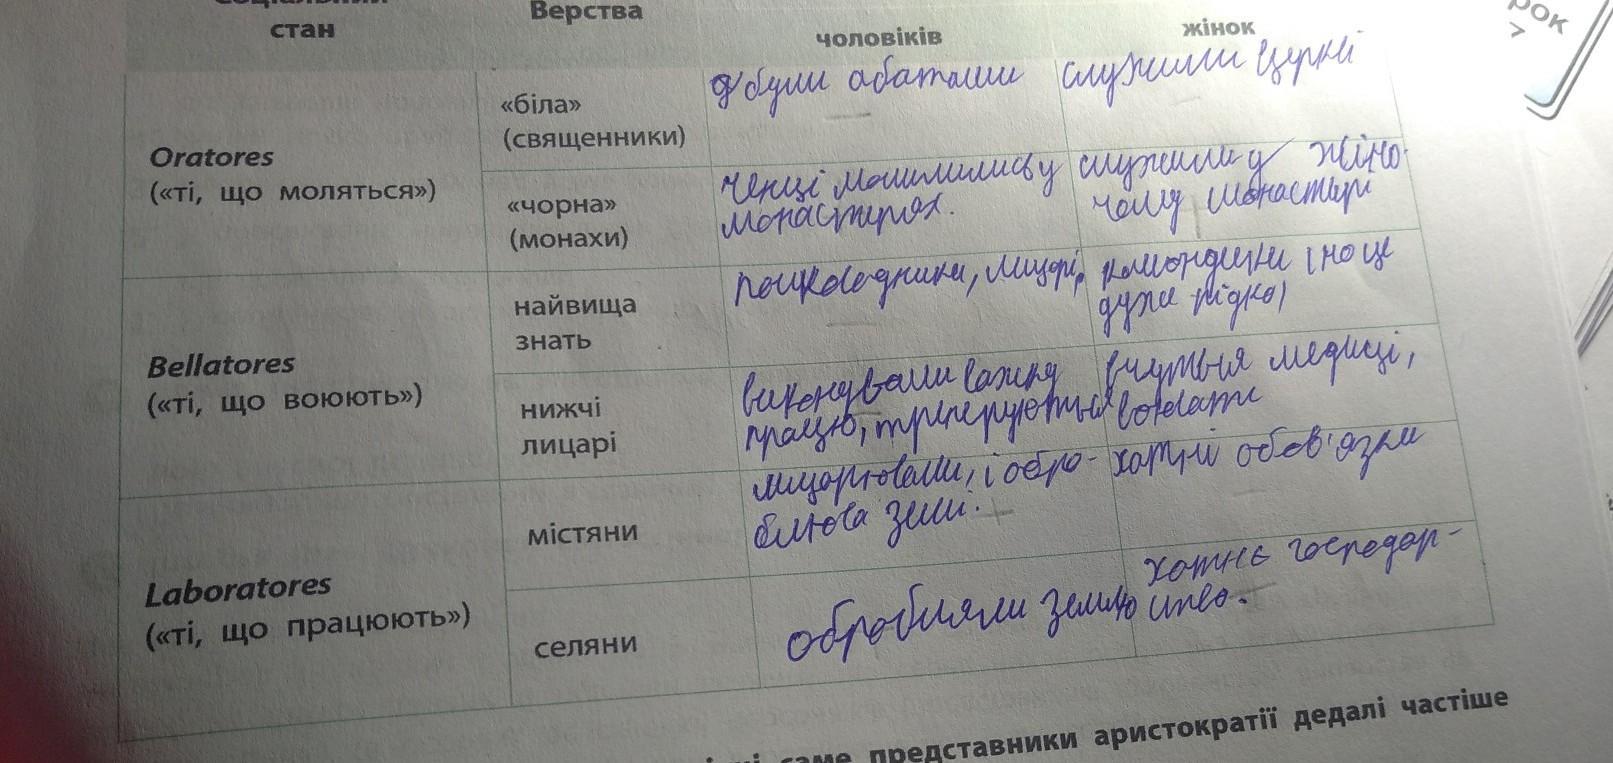 Соціальний
стан
Верства
чоловіків
жінок
Oratores
(«ті, що моляться»)
«біла»
(священники)
були абатами
служили церкві
«чорна»
(монахи)
ченці молимились у
монастирях.
служили у жіно-
чому монастирі
Bellatores
(«ті, що воюють»)
найвища
знать
полководники, лицарі,
командири (но це
дуже рідко)
нижчі
лицарі
виконували важку
працю, тренеруються
вчуться медиці,
воювати
Laboratores
(«ті, що працюють»)
містяни
лицарювали, і обро-
блюва землі.
хатні обов'язки
селяни
обробляли землю
хатнє господар-
ство.
саме представники аристократії дедалі частіше
рок
>